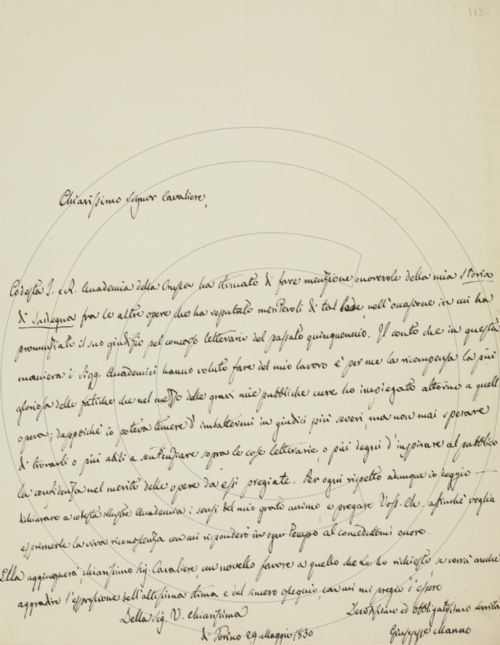 113
Chiarissimo Signor Cavaliere,
Codesta I. e R. Accademia della Crusca ha stimato di fare menzione onorevole della mia Storia
di Sardegna fra le altre opere che ha reputato meritevoli di tal lode nell'occasione in cui ha
pronunziato il suo giudizio pel concorso letterario del passato quinquennio. Il conto che in questa
maniera i Sigg. Accademici hanno voluto fare del mio lavoro è per me la ricompensa la più
gloriosa delle fatiche che nel mezzo delle gravi mie pubbliche cure ho impiegato attorno a quell'
opera; dappoichè io poteva temere d'imbattermi in giudici più severi ma non mai sperare
di trovarli o più abili a sentenziare sopra le cose letterarie, o più degni d'inspirare al pubblico
la confidenza nel merito delle opere da essi pregiate. Per ogni rispetto adunque io deggio
dichiarare a cotesta illustre Accademia i sensi del mio grato animo, e pregare Voss. Ch. affinchè voglia
esprimerle la viva riconoscenza con cui risponderò in ogni tempo al concedutomi onore.
Ella aggiungerà, chiarissimo Sig. Cavaliere un novello favore a quello che Le ho richiesto, se vorrà anche
aggradire l'espressione dell'altissima stima e del sincero ossequio, con cui mi pregio d'essere
Della Sig. V. Chiarissima
Devotissimo ed obbligatissimo servitore
di Torino 29 Maggio 1830
Giuseppe Manno